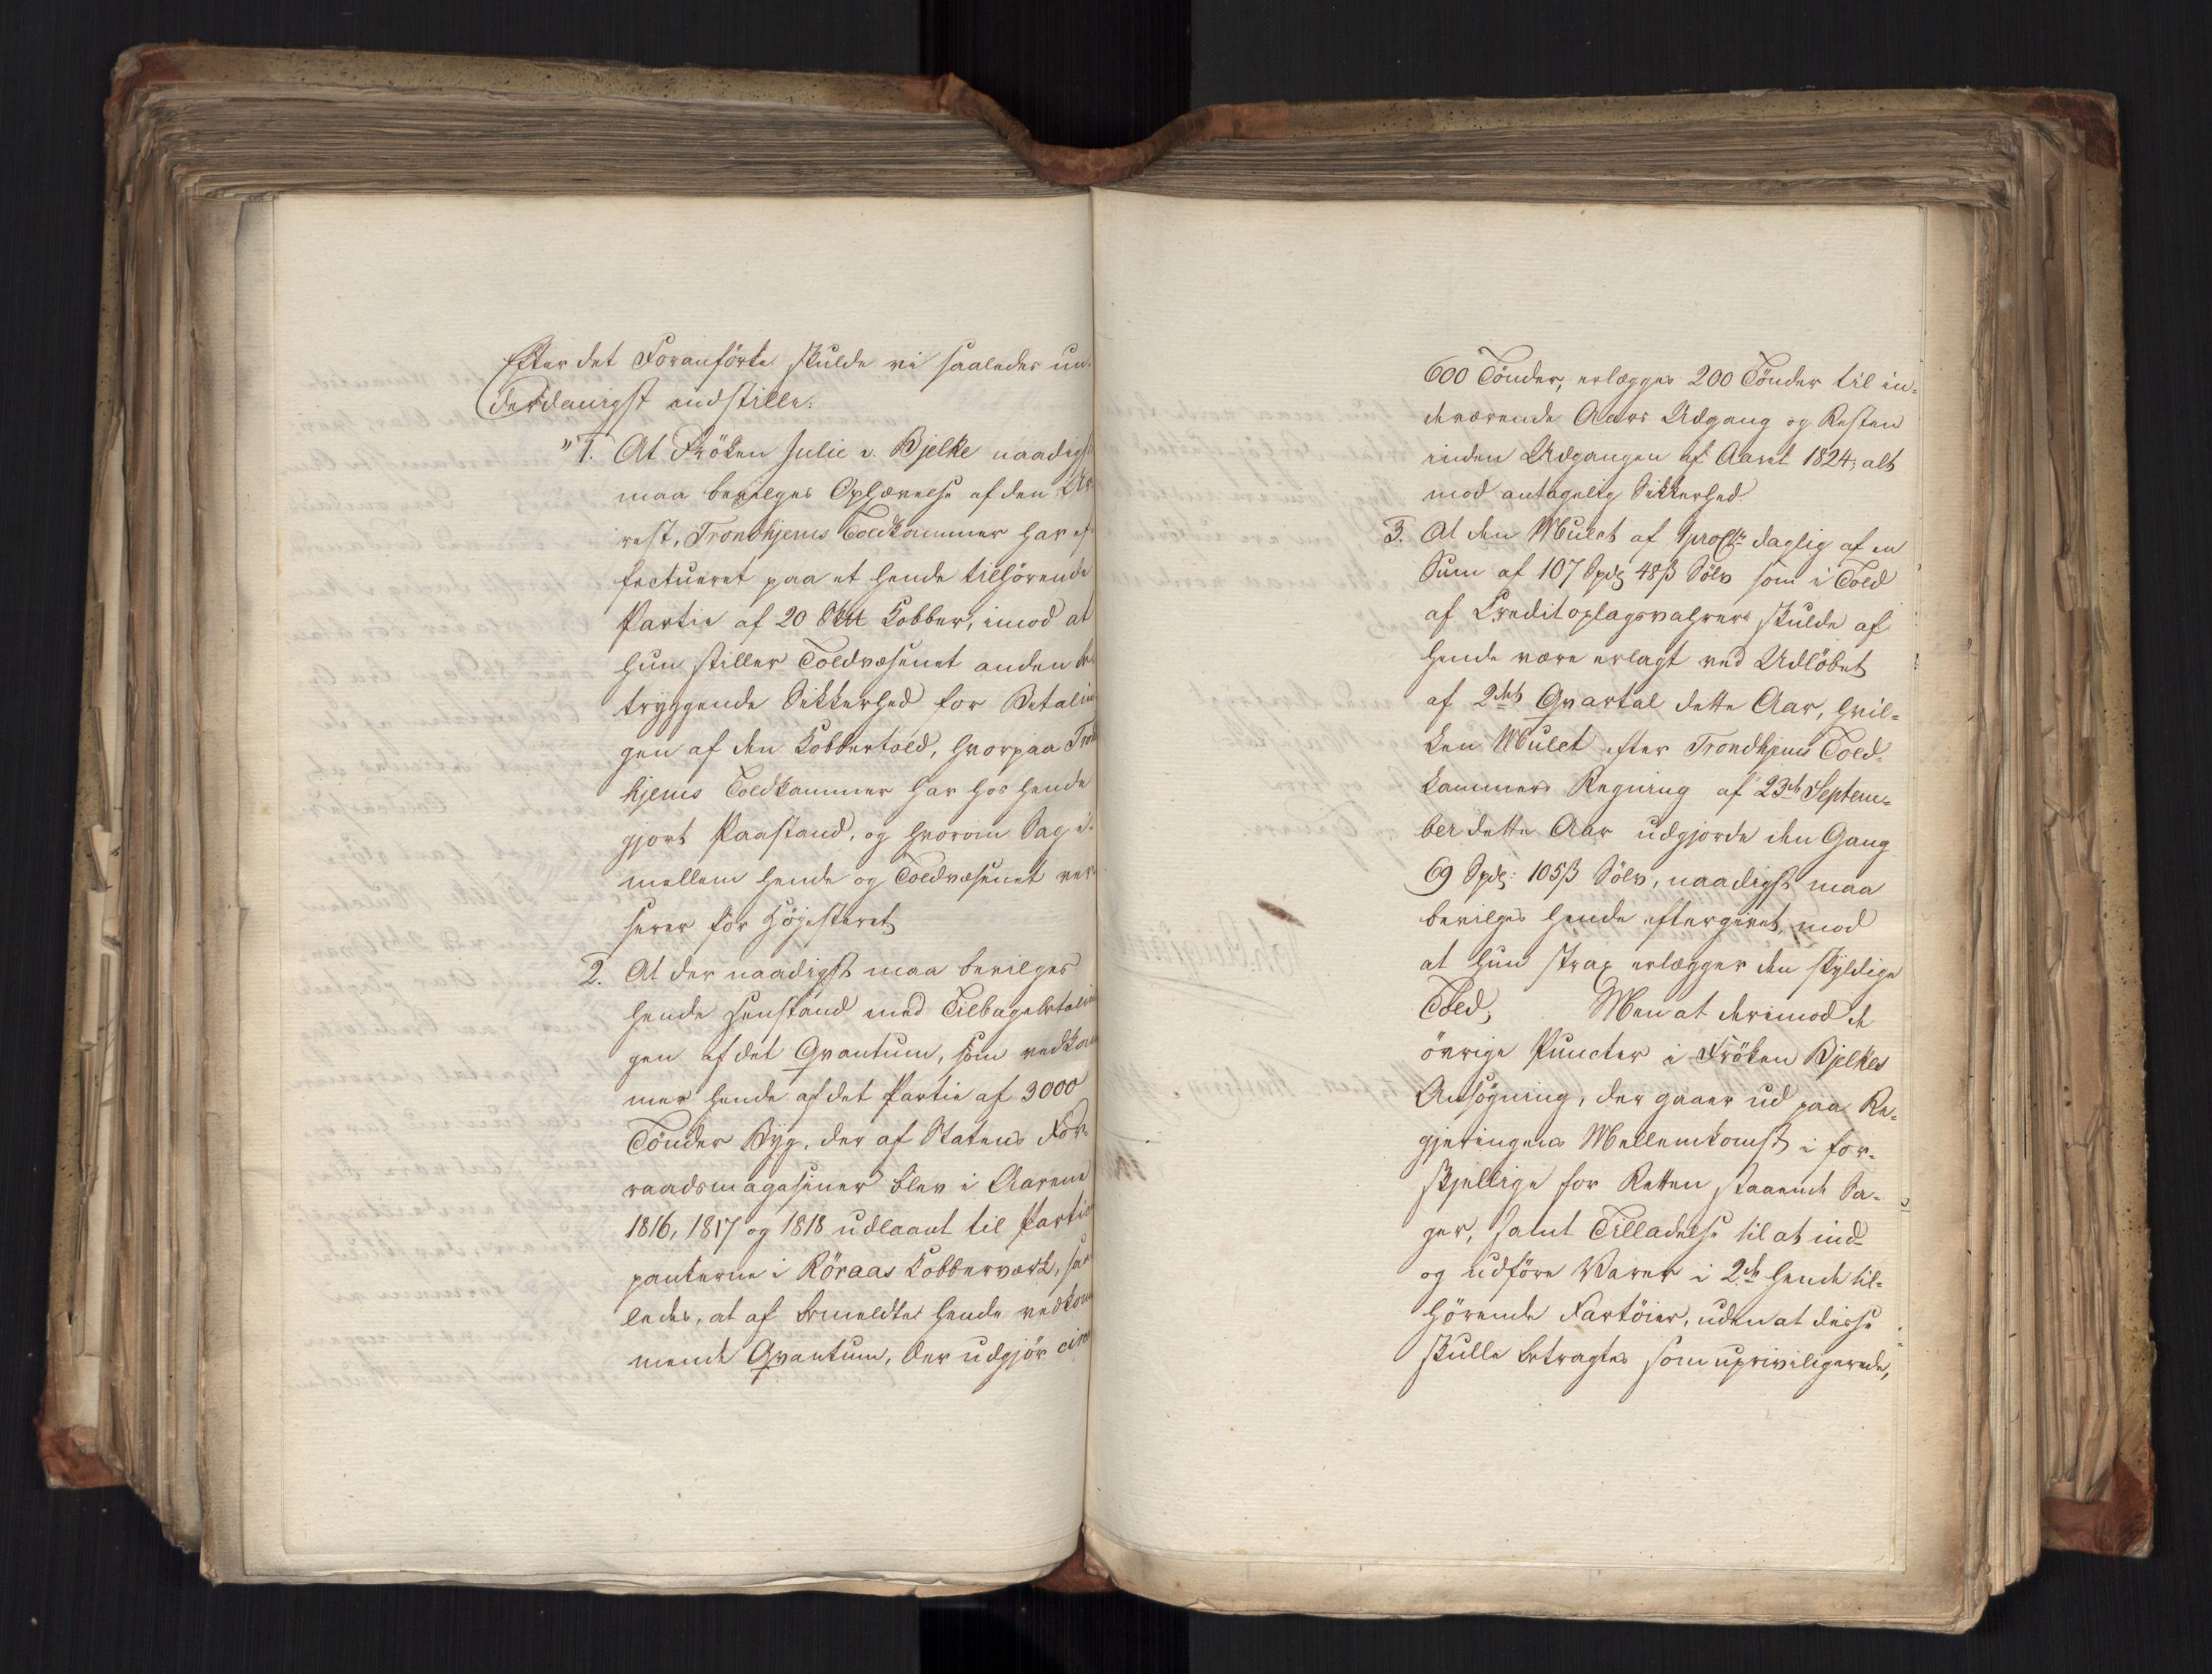 Efter det Foranførte skulde vi saaledes un-
derdanigst indstille:
"1. At Frøken Julie v. Bjelke naadigst
maa bevilges Ophævelse af den Ar-
rest, Trondhjems Toldkammer har ef-
fectueret paa et hende tilhørende
Partie af 20 Sk℔ Kobber, imod at
hun stiller Toldvæsenet anden be-
tryggende Sikkerhed for Betalin-
gen af den Kobbertold, hvorpaa Trond
hjems Toldkammer har hos hende
gjort Paastand, og hvorom Sag i-
mellem hende og Toldvæsenet ver-
serer for Højesteret,
2. At der naadigst maa bevilges
hende Henstand med Tilbagebetalin
gen af det Qvantum, som vedkom
mer hende af det Partie af 3000
Tønder Byg, der af Statens For-
raadsmagasiner blev i Aarene
1816, 1817 og 1818 udlaant til Partici
panterne i Röraas Kobberværk, saa
ledes, at af bemeldte hende vedkom
mende Qvantum, der udgjør circa
600 Tønder, erlægges 200 Tønder til in-
deværende Aars Udgang og Resten
inden Udgangen af Aaret 1824; alt
mod antagelig Sikkerhed.
3. At den Mulct af 1 pro Cto daglig af en
Sum af 107 Spd 48 ß Sølv som i Told
af Creditoplagsvahrer skulde af
hende være erlagt ved Udløbet
af 2det Qvartal dette Aar, hvil-
ken Mulct efter Trondhjems Told-
kammers Regning af 23de Septem-
ber dette Aar udgjorde den Gang
69 Spd: 105 ß Sølv, naadigst maa
bevilges hende eftergivet, mod
at hun strax erlægger den skyldige
Told; Men at derimod de
øvrige Puncter i Frøken Bjelkes
Ansøgning, der gaaer ud paa Re-
gjeringens Mellemkomst i for-
skjellige for Retten staaende Sa-
ger, samt Tilladelse til at ind-
og udføre Varer i 2de hende til-
hørende Fartøier, uden at disse
skulle betragtes som upriviligerede,